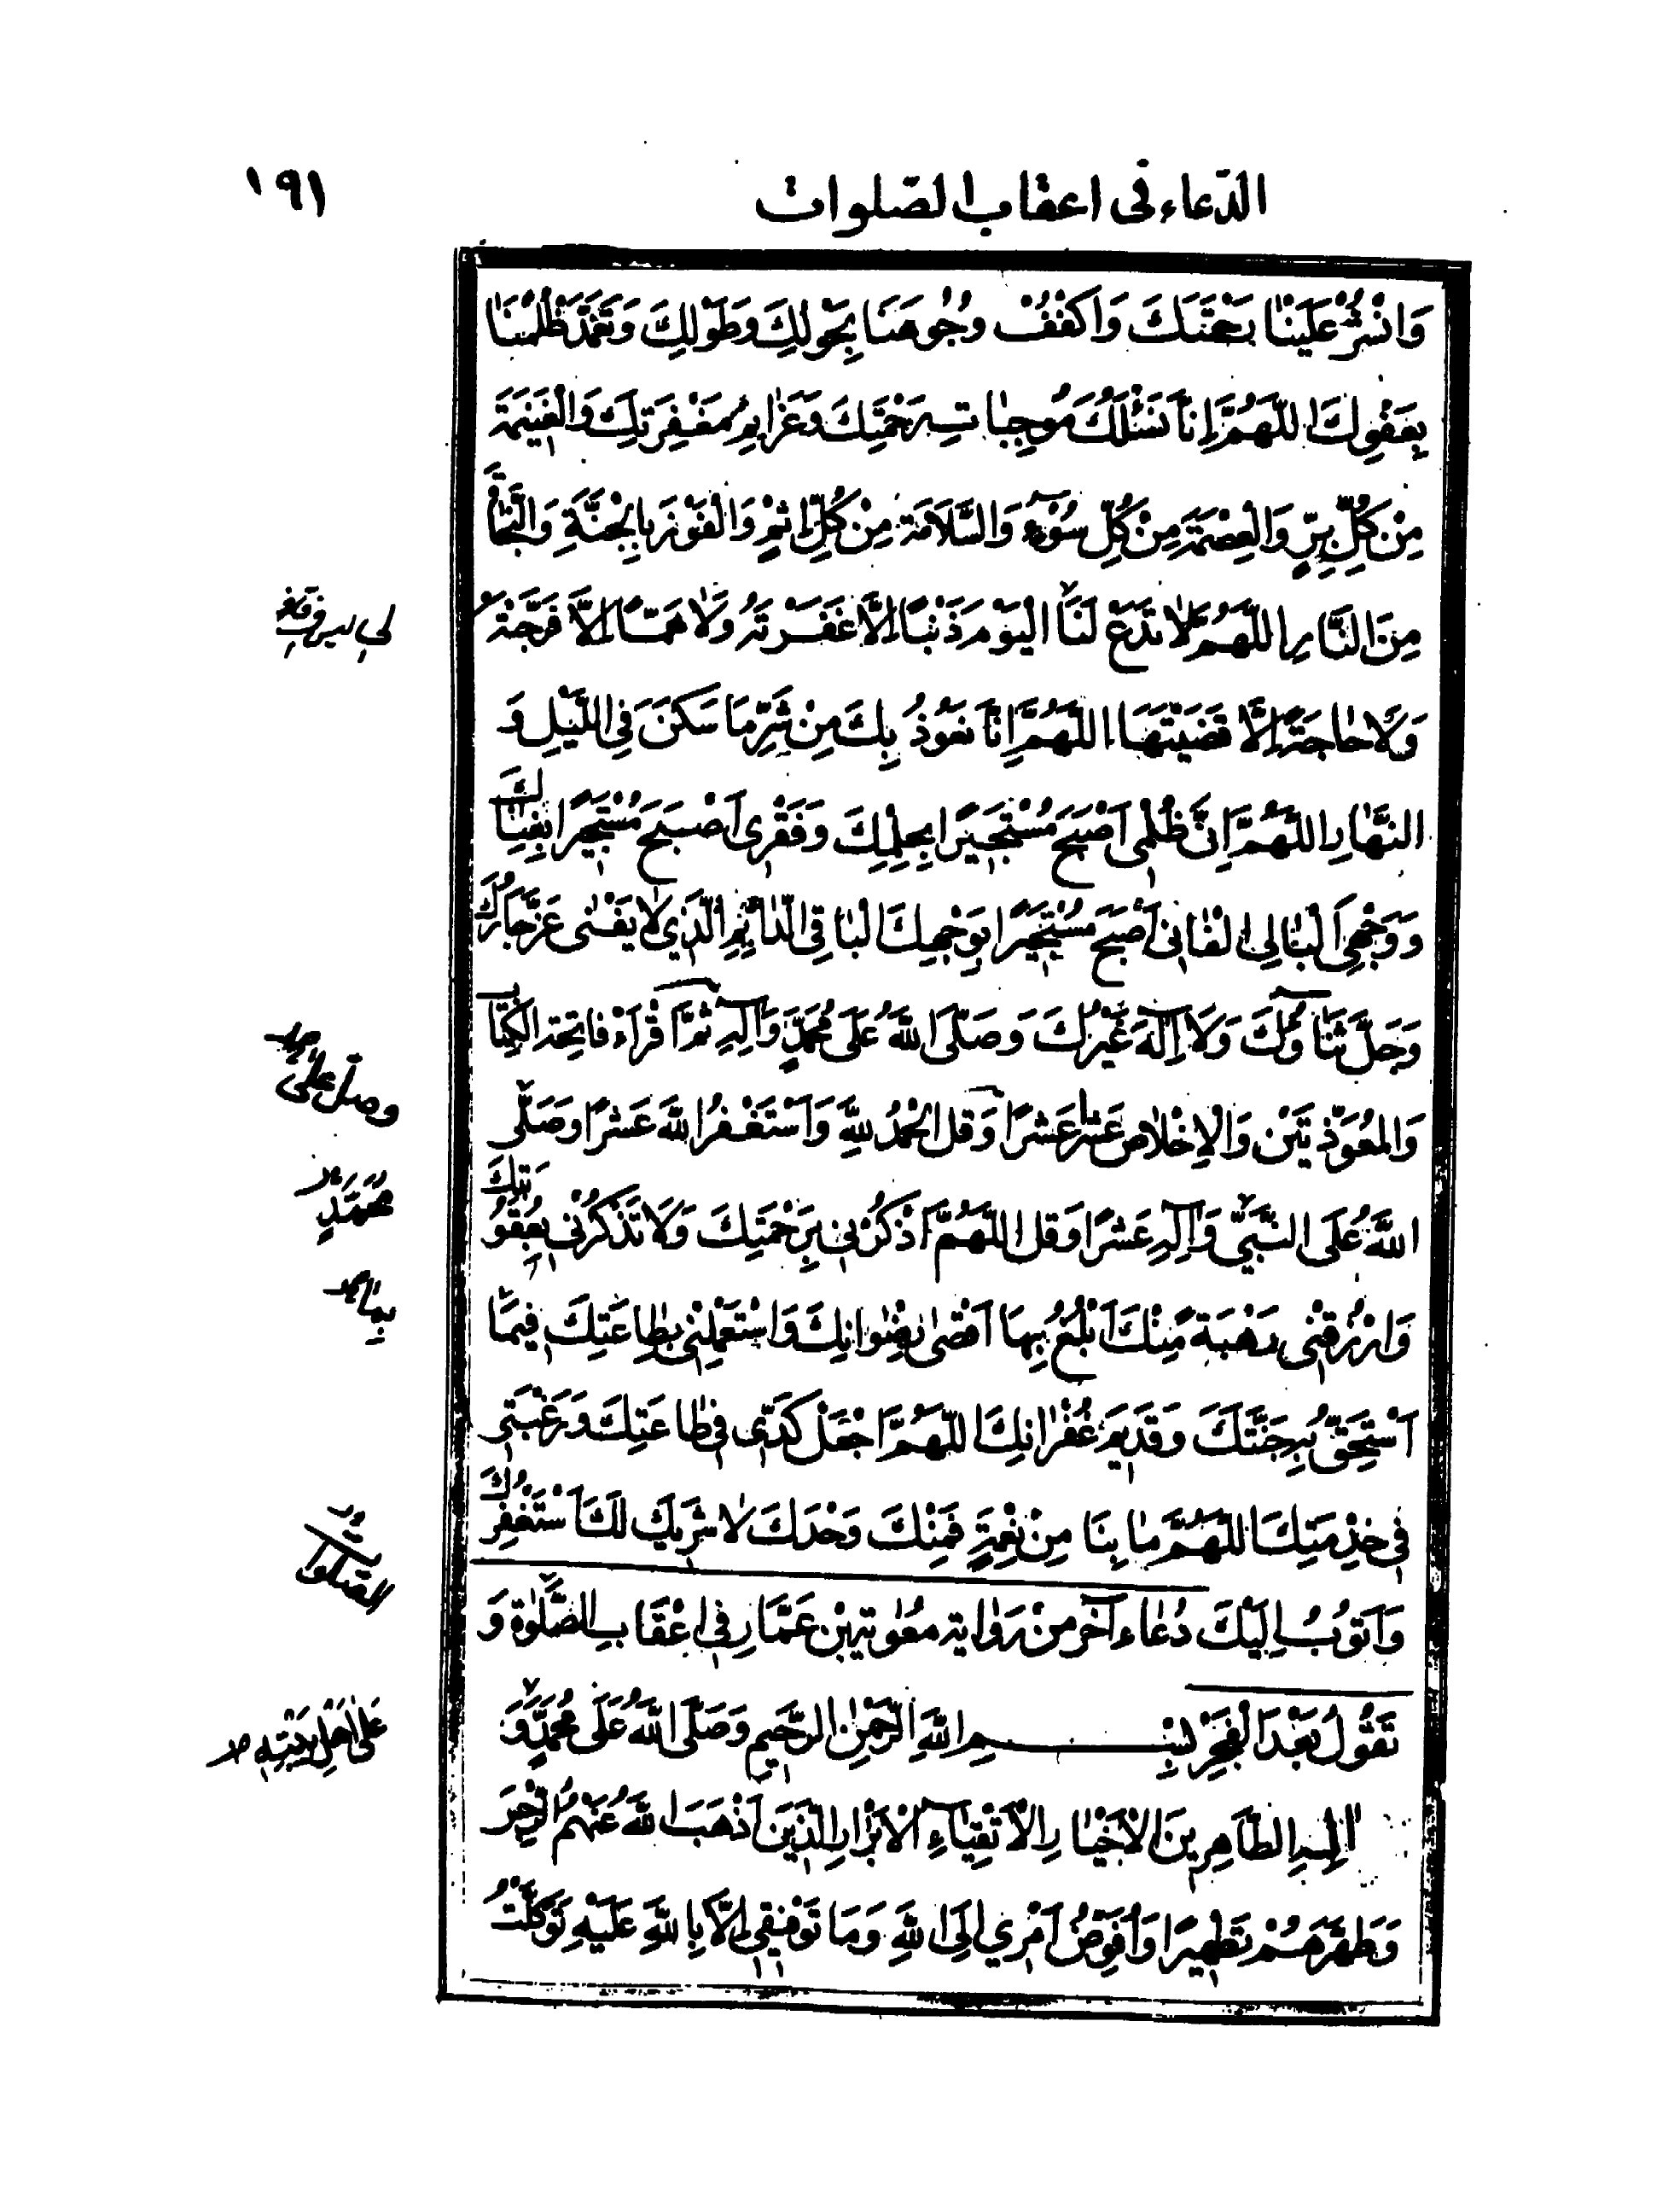 الدّعاء فى اعقاب الصّلوات ١٩١
وَانْشُرْ عَلَيْنٰا رَحْمَتَكَ وَاكْفُفْ وُجُوهَنَا بِحَوْلِكَ وَطَوْلِكَ وَتَغَمَّدْ ظُلْمَنٰا
بِعَفْوِكَ اَللّهُمَّ اِنّٰا نَسْئَلُكَ مُوجِبٰاتِ رَحْمَتِكَ وَعَزٰائِمَ مَغْفِرَتِكَ وَالْغَنِيمَةَ
مِنْ كُلِّ بِرٍّ وَالْعِصْمَةَ مِنْ كُلِّ سُوۤءٍ وَالسَّلَامَةَ مِنْ كُلِّ اِثْمٍ وَالْفَوْزَ بِالْجَنَّةِ وَالنَّجٰاةَ
مِنَ النَّارِ اللّهُمَّ لٰا تَدَعْ لَنَا الْيَوْمَ ذَنْبًا اِلَّا غَفَرْتَهُ وَلٰا هَمًّا اِلَّا فَرَّجْتَهُ
وَلَا حٰاجَةً اِلَّا قَضَيْتَهَا اَللّهُمَّ اِنّٰا نَعُوذُ بِكَ مِنْ شَرِّ مَا سَكَنَ فِى اللَّيْلِ وَ
النَّهٰارِ اللّهُمَّ اِنَّ ظُلْمِى اَصْبَحَ مُسْتَجيرًا بِحِلْمِكَ وَفَقْرِى اَصْبَحَ مُسْتَجيرًا بِغِنٰاكَ
وَوَجْهِىَ الْبٰالِى الْفٰانى اَصْبَحَ مُسْتَجيرًا بِوَجْهِكَ الْبٰاقِى الدّٰائِمِ الَّذي لٰا يَفْنٰى عَزَّ جَارُكَ
وَجَلَّ ثَنٰاؤُكَ وَلَا اِلٰهَ غَيْرُكَ وَصَلَّى اللّٰهُ عَلَى مُحَمَّدٍ وَآلِهِ ثُمَّ اقْرَاءْ فٰاتِحَةَ الْكِتٰابِ
وَالمُعَوَّذَتَيْنِ وَالْاِخْلٰاصَ عَشْرًا عَشْرًا وَقُلِ الْحَمْدُ لِلّٰهِ وَاَسْتَغْفِرُ اللّٰهَ عَشْرًا وَصَلَّى
اللّٰهُ عَلَى النَّبِيِّ وَآلِهِ عَشْرًا وَقُلِ اللّهُمَّ اذْكُرْنى بِرَحْمَتِكَ وَلَا تَذْكُرْنى بِعُقُوبَتِكَ
وَارْزُقْنى رَهْبَةً مِنْكَ اَبْلُغُ بِهَا اَقْصٰى رِضْوٰانِكَ وَاسْتَعْمِلْنى بِطٰاعَتِكَ فيمَا
اَسْتَحِقُّ بِهِ جَنَّتَكَ وَقَديمَ غُفْرٰانِكَ اَللّهُمَّ اجْعَلْ كَدّى فى طٰاعَتِكَ وَرَغْبَتى
فى خِدْمَتِكَ اَللّهُمَّ مٰا بِنَا مِنْ نِعْمَةٍ فَمِنْكَ وَحْدَكَ لٰا شَريكَ لَكَ اَسْتَغْفِرُكَ
وَاَتُوبُ اِلَيْكَ دُعٰاء آخَر مِنْ رِوٰاية مُعٰوية بْنِ عَمَّارٍ فى اَعْقَابِ الصَّلٰوةِ وَ
تَقُولُ بَعْدَ الْفَجْرِ بِسْمِ اللّٰهِ الرَّحْمٰنِ الرَّحيمِ وَصَلَّى اللّٰهُ عَلَى مُحَمَّدٍ وَ
آلِهِ الطّاهِرينَ الْاَخْيٰارِ الْاَتْقِيٰاءِ الْاَبْرٰارِ الَّذينَ اَذْهَبَ اللّٰهُ عَنْهُمُ الرِّجْسَ
وَطَهَّرَهُمْ تَطْهيرًا وَاُفَوِّضُ اَمْري اِلَى اللّٰهِ وَمَا تَوْفيقى اِلَّا بِاللّٰهِ عَلَيْهِ تَوَكَّلْتُ
وصلّ على
مُحَمَّدٍ
الصّلوات
عَلٰى اَهْلِ بَيْتِهِ